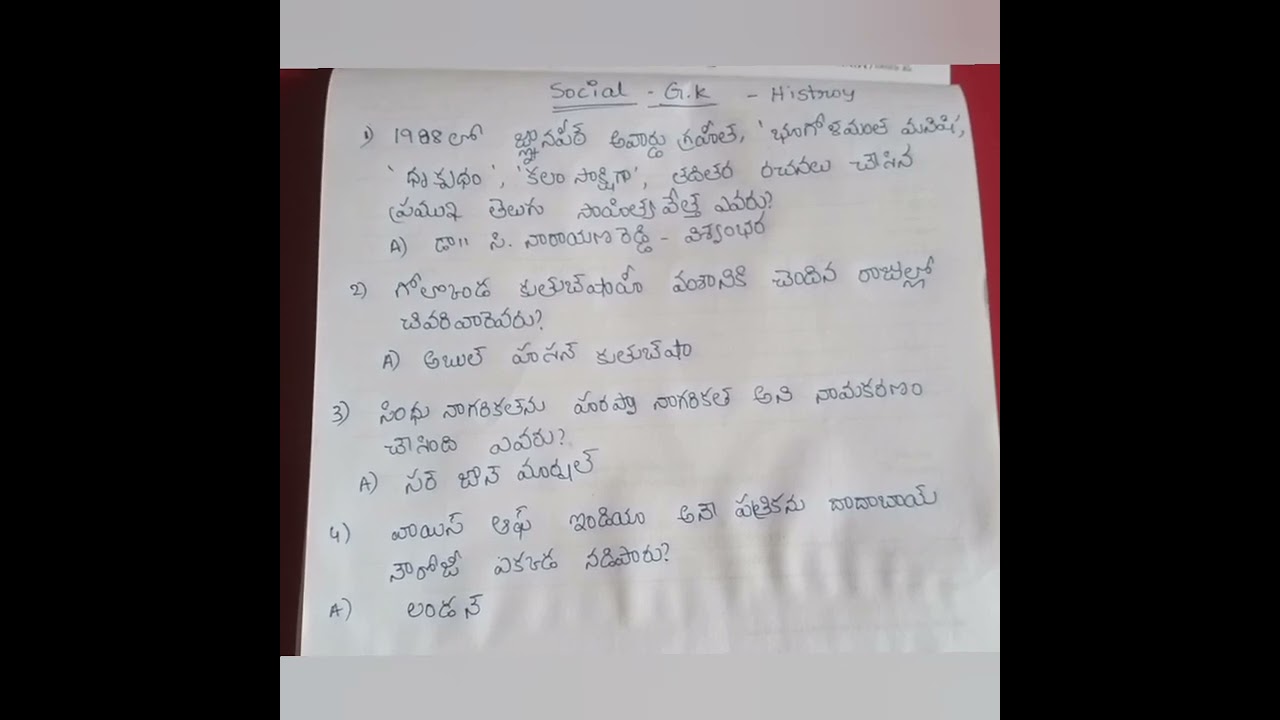 Social - G.K - Histroy
1) 1988లో జ్ఞానపీఠ్ అవార్డు గ్రహీత, 'భూగోళమంత మనిషి',
'దృక్పథం', 'కలం సాక్షిగా', తదితర రచనలు చేసిన
ప్రముఖ తెలుగు సాహిత్య వేత్త ఎవరు?
A) డా॥ సి. నారాయణ రెడ్డి - విశ్వంభర
2) గోల్కొండ కుతుబ్‌షాహీ వంశానికి చెందిన రాజుల్లో
చివరివారెవరు?
A) అబుల్ హసన్ కుతుబ్‌షా
3) సింధు నాగరికతను హరప్పా నాగరికత అని నామకరణం
చేసింది ఎవరు?
A) సర్ జాన్ మార్షల్
4) వాయిస్ ఆఫ్ ఇండియా అనే పత్రికను దాదాబాయ్
నౌరోజీ ఎక్కడ నడిపారు?
A) లండన్